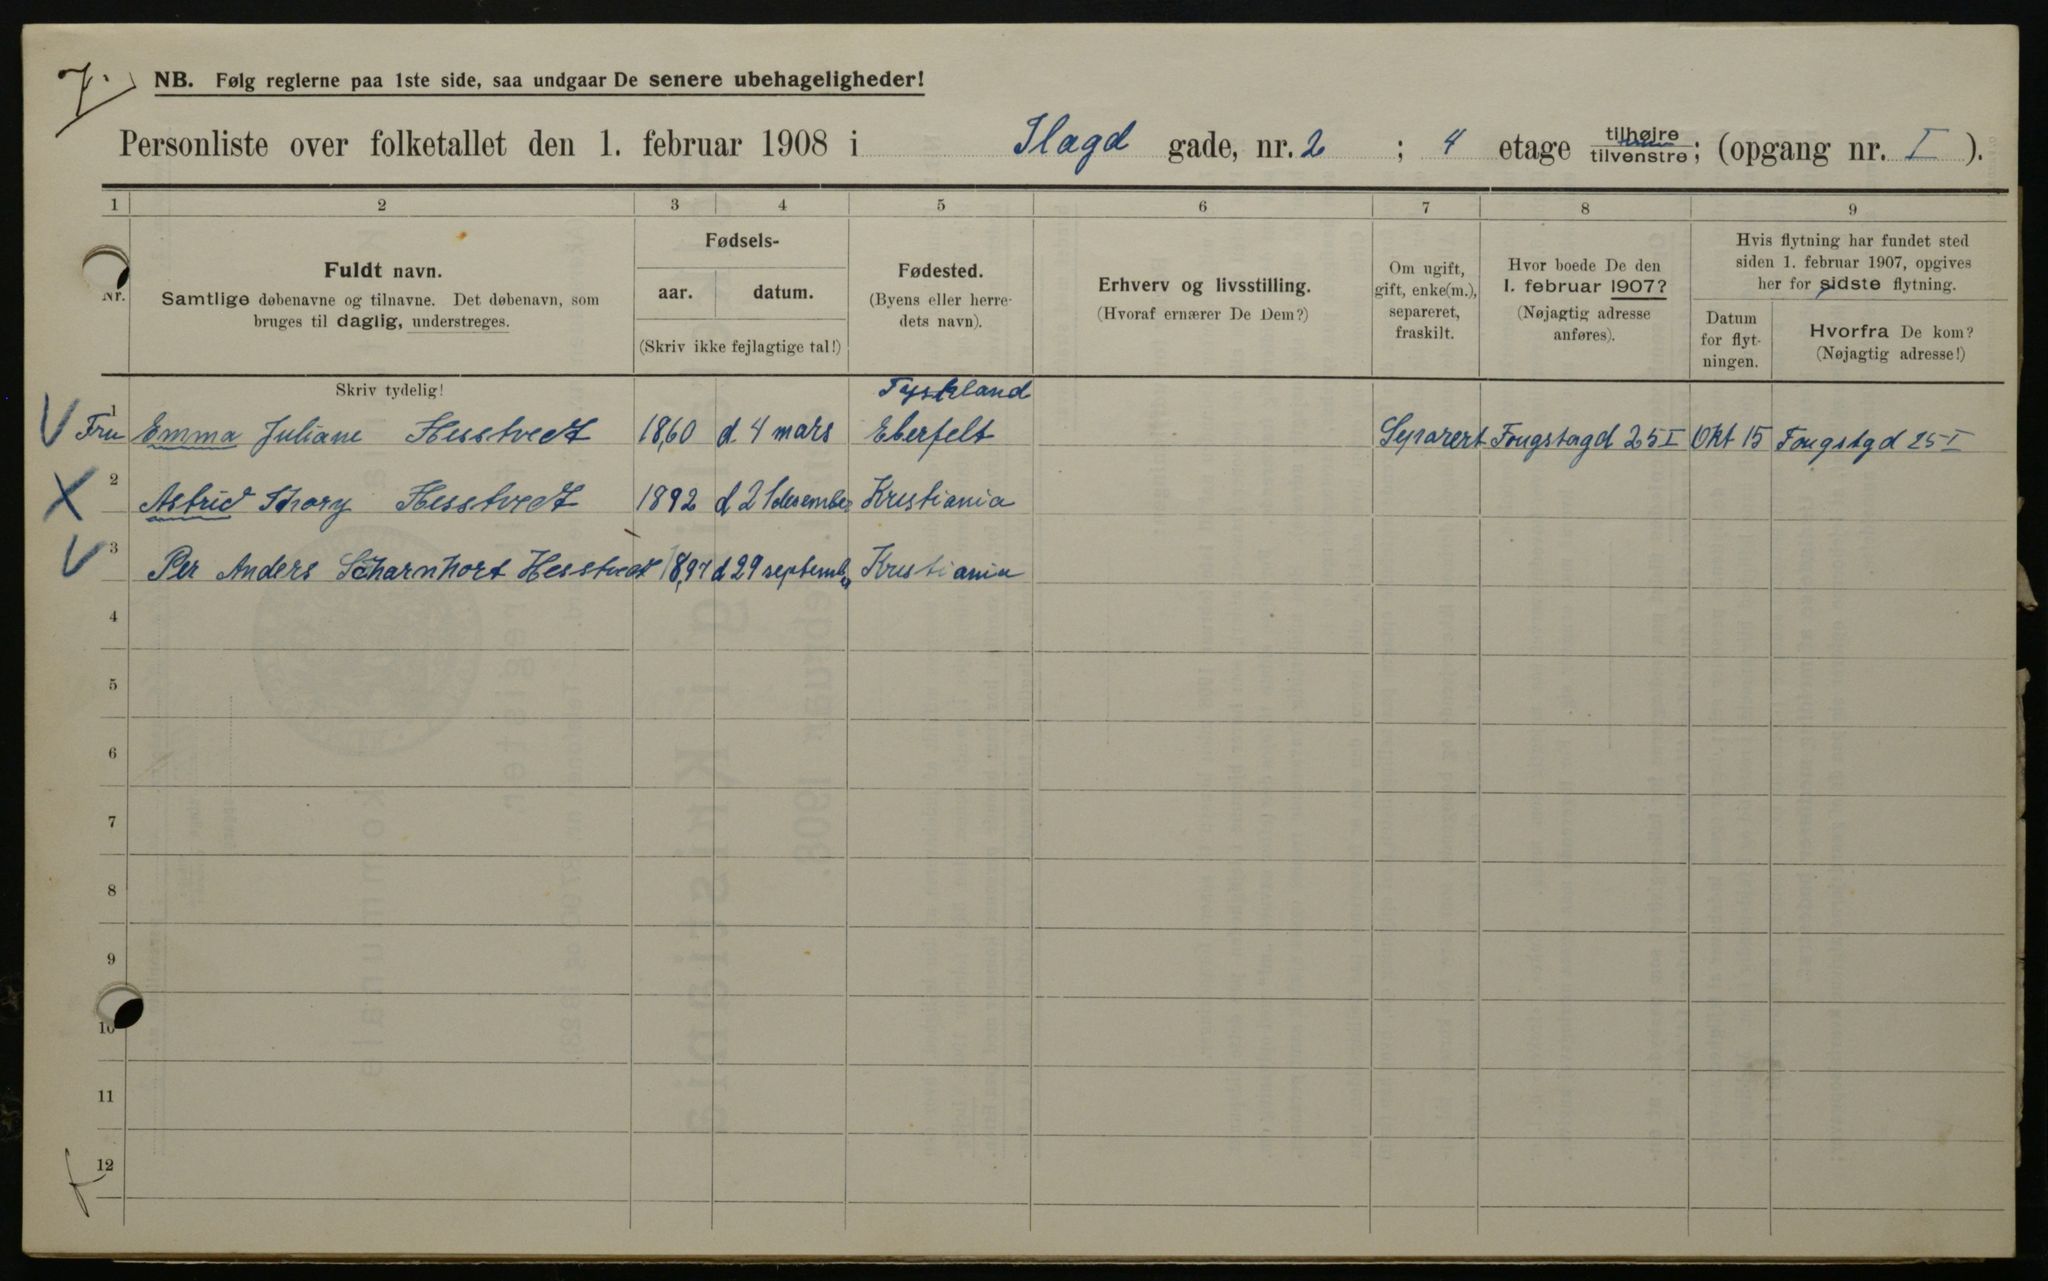 NB. Følg reglerne paa 1ste side, saa undgaar De senere ubehageligheder!
Personliste over folketallet den 1. februar 1908 i Ilagd gade, nr. 2 ; 4 etage tilhøjre tilvenstre; (opgang nr. I ).
1 2 3 4 5 6 7 8 9
Nr.
Fuldt navn.
Samtlige døbenavne og tilnavne. Det døbenavn, som
bruges til daglig, understreges.
Fødsels-
aar. datum.
(Skriv ikke fejlagtige tal!)
Fødested.
(Byens eller herre-
dets navn).
Erhverv og livsstilling.
(Hvoraf ernærer De Dem?)
Om ugift,
gift, enke(m.),
separeret,
fraskilt.
Hvor boede De den
1. februar 1907?
(Nøjagtig adresse
anføres).
Hvis flytning har fundet sted
siden 1. februar 1907, opgives
her for sidste flytning.
Datum
for flyt-
ningen.
Hvorfra De kom?
(Nøjagtig adresse!)
Skriv tydelig!
Tyskland
1 Fru Emma Juliane Hesstvedt 1860 d. 4 mars Eberfelt Separert Fougstagd 25 I Okt 15 Fougstgd 25 I
2 Astrid Thory Hesstvedt 1892 d 21 desember Kristiania
3 Per Anders Scharnhort Hesstvedt 1897 d 29 septemb Kristiania
4
5
6
7
8
9
10
11
12